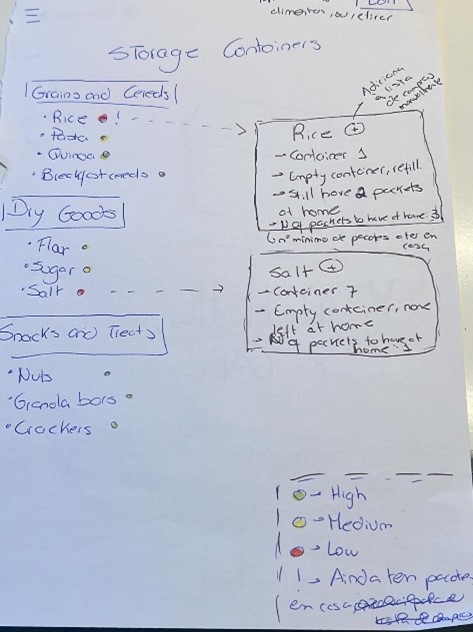 alimentos, ou retirar
Storage Containers
Grains and Cereals
• Rice • !
• Pasta
• Quinoa
• Breakfast cereals
Dry Goods
• Flar
• Sugar
• Salt
Snacks and Treats
• Nuts
• Granola bars
• Crackers
Adiciona
à lista
de compras
manualmente
Rice +
→ Container 1
→ Empty container, refill
→ Still have 2 packets
at home
→ Nº of packets to have at home: 3
(nº mínimo de pacotes a ter en
casa
Salt +
→ Container 7
→ Empty container, none
left at home
→ Nº of packets to have at
home: 1
→ High
→ Medium
→ Low
! → Ainda ten pacotes
en casa